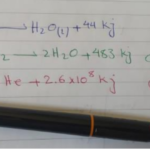 → H₂O(l) + 44 kj
2 → 2H₂O + 483 kj
He + 2.6x10⁸ kj